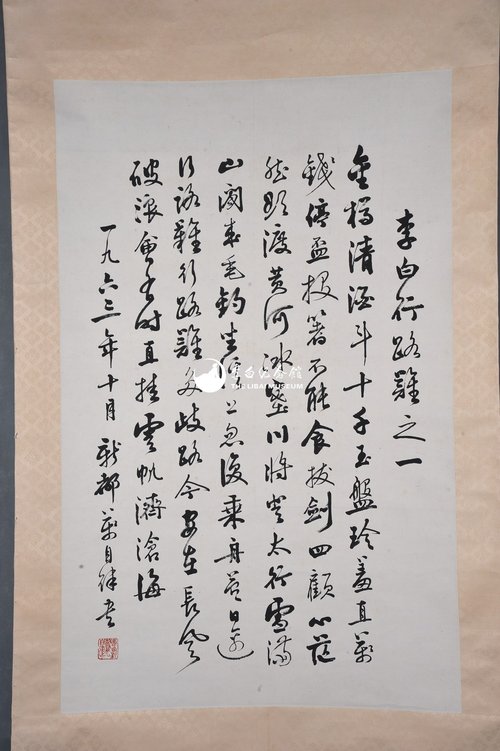 李白行路難之一
金樽清酒斗十千玉盤珍羞直萬
錢停盃投箸不能食拔劍四顧心茫
然欲渡黃河冰塞川將登太行雪滿
山閑來垂釣坐溪上忽復乘舟夢日邊
行路難行路難多歧路今安在長風
破浪會有時直挂雲帆濟滄海
一九六三年十月新都萬自書
李白纪念馆
THE LIBAI MUSEUM